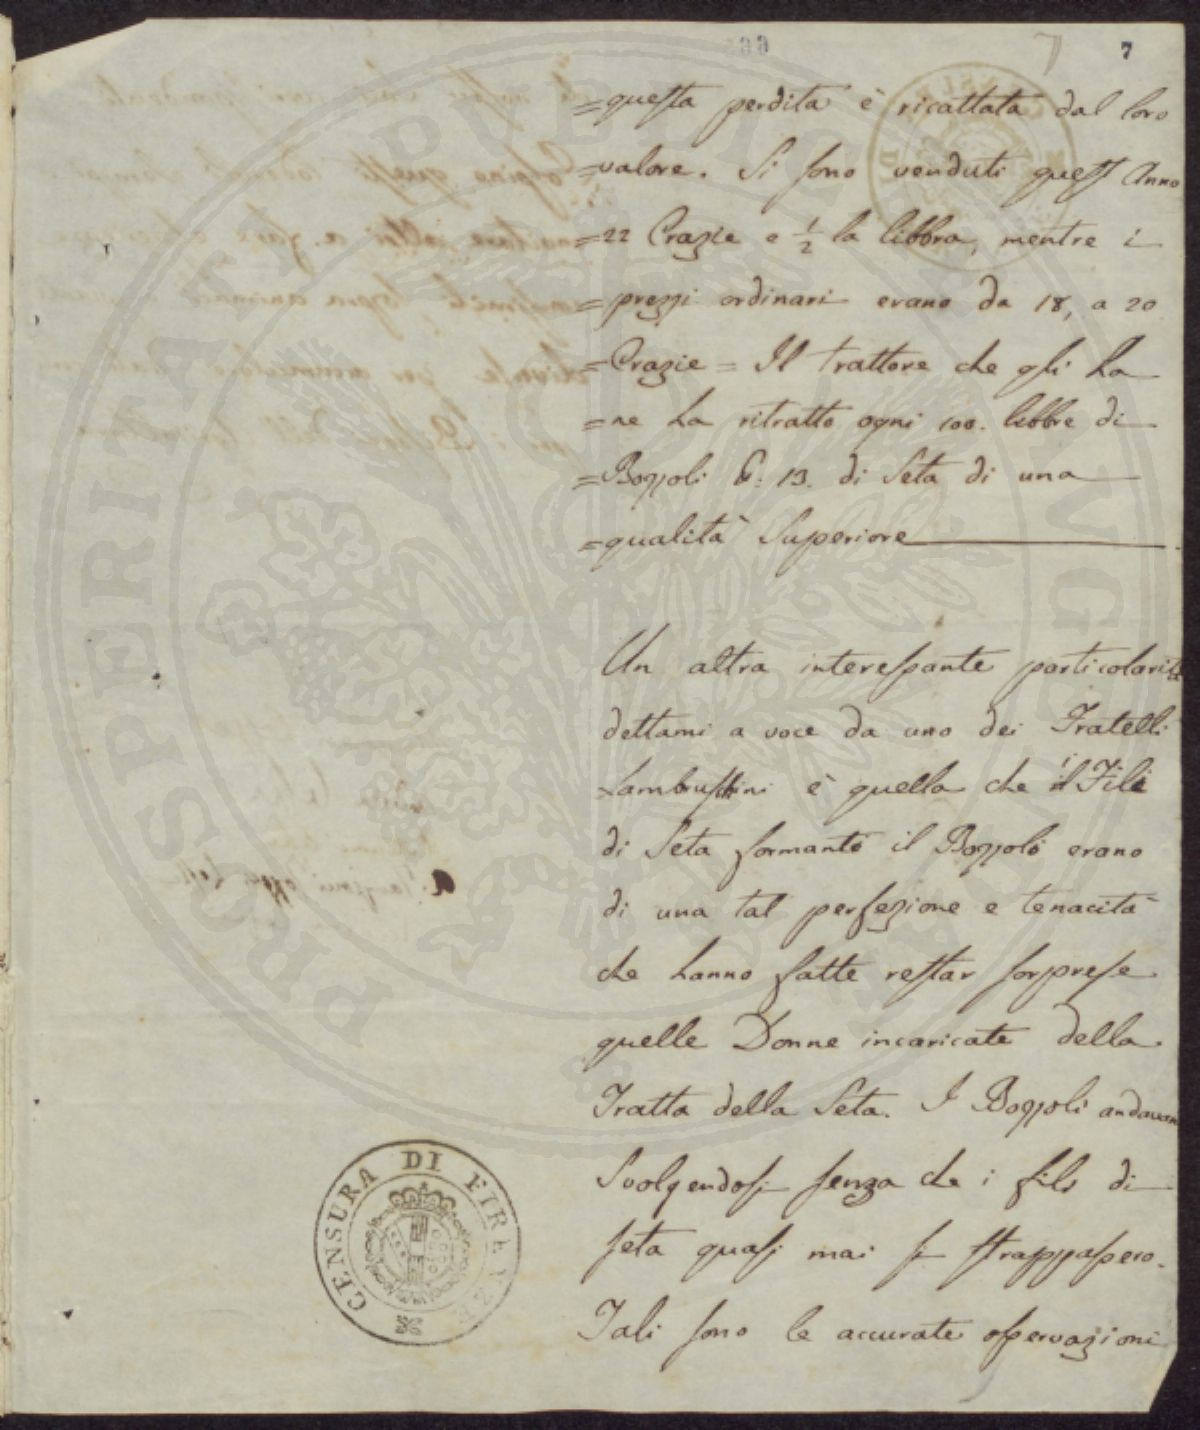 7
=questa perdita è ricattata dal loro
=valore. Si sono venduti quest Anno
=22 Crazie e ½ la libbra, mentre i
=prezzi ordinari erano da 18, a 20
=Crazie = Il Trattore che gli ha
=ne ha ritratto ogni 100. libbre di
=Bozzoli ℔: 13. di Seta di una
=qualità Superiore
Un altra interessante particolarità
dettami a voce da uno dei Fratelli
Lambruschini è quella che i Fili
di Seta formanti il Bozzolo erano
di una tal perfezione e tenacità
che hanno fatte restar sorprese
quelle Donne incaricate della
Tratta della Seta. I Bozzoli andavan
Svolgendosi senza che i fili di
seta quasi mai si strappassero.
Tali sono le accurate osservazioni
CENSURA DI FIRENZE
PROSPERITATI PUBLICAE AUGENDAE